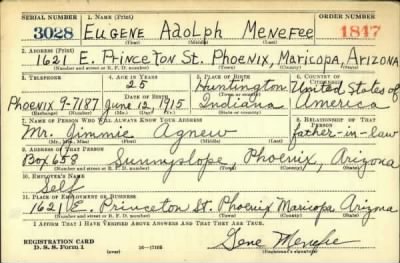 SERIAL NUMBER 1. NAME (Print) ORDER NUMBER
3028 EUGENE AdOLPH MENEFEE 1847
(First) (Middle) (Last)
2. ADDRESS (Print)
1621 E. PRINCETON ST. PHOENIX, MARICOPA, ARIZONA
(Number and street or R. F. D. number) (Town) (County) (State)
3. TELEPHONE 4. AGE IN YEARS 5. PLACE OF BIRTH 6. COUNTRY OF CITIZENSHIP
25 Huntington United States of
DATE OF BIRTH
Phoenix 9-7187 June 12, 1915 Indiana America
(Exchange) (Number) (Mo.) (Day) (Yr.) (State or country)
7. NAME OF PERSON WHO WILL ALWAYS KNOW YOUR ADDRESS 8. RELATIONSHIP OF THAT PERSON
Mr. Jimmie Agnew father-in-law
(Mr., Mrs., Miss) (First) (Middle) (Last)
9. ADDRESS OF THAT PERSON
Box 658 Sunnyslope, Phoenix, Arizona
(Number and street or R. F. D. number) (Town) (County) (State)
10. EMPLOYER'S NAME
Self
11. PLACE OF EMPLOYMENT OR BUSINESS
1621 E. Princeton St. Phoenix Maricopa Arizona
(Number and street or R. F. D. number) (Town) (County) (State)
I AFFIRM THAT I HAVE VERIFIED ABOVE ANSWERS AND THAT THEY ARE TRUE.
REGISTRATION CARD
D. S. S. Form 1 16—17105 Gene Menefee
(Registrant's signature)